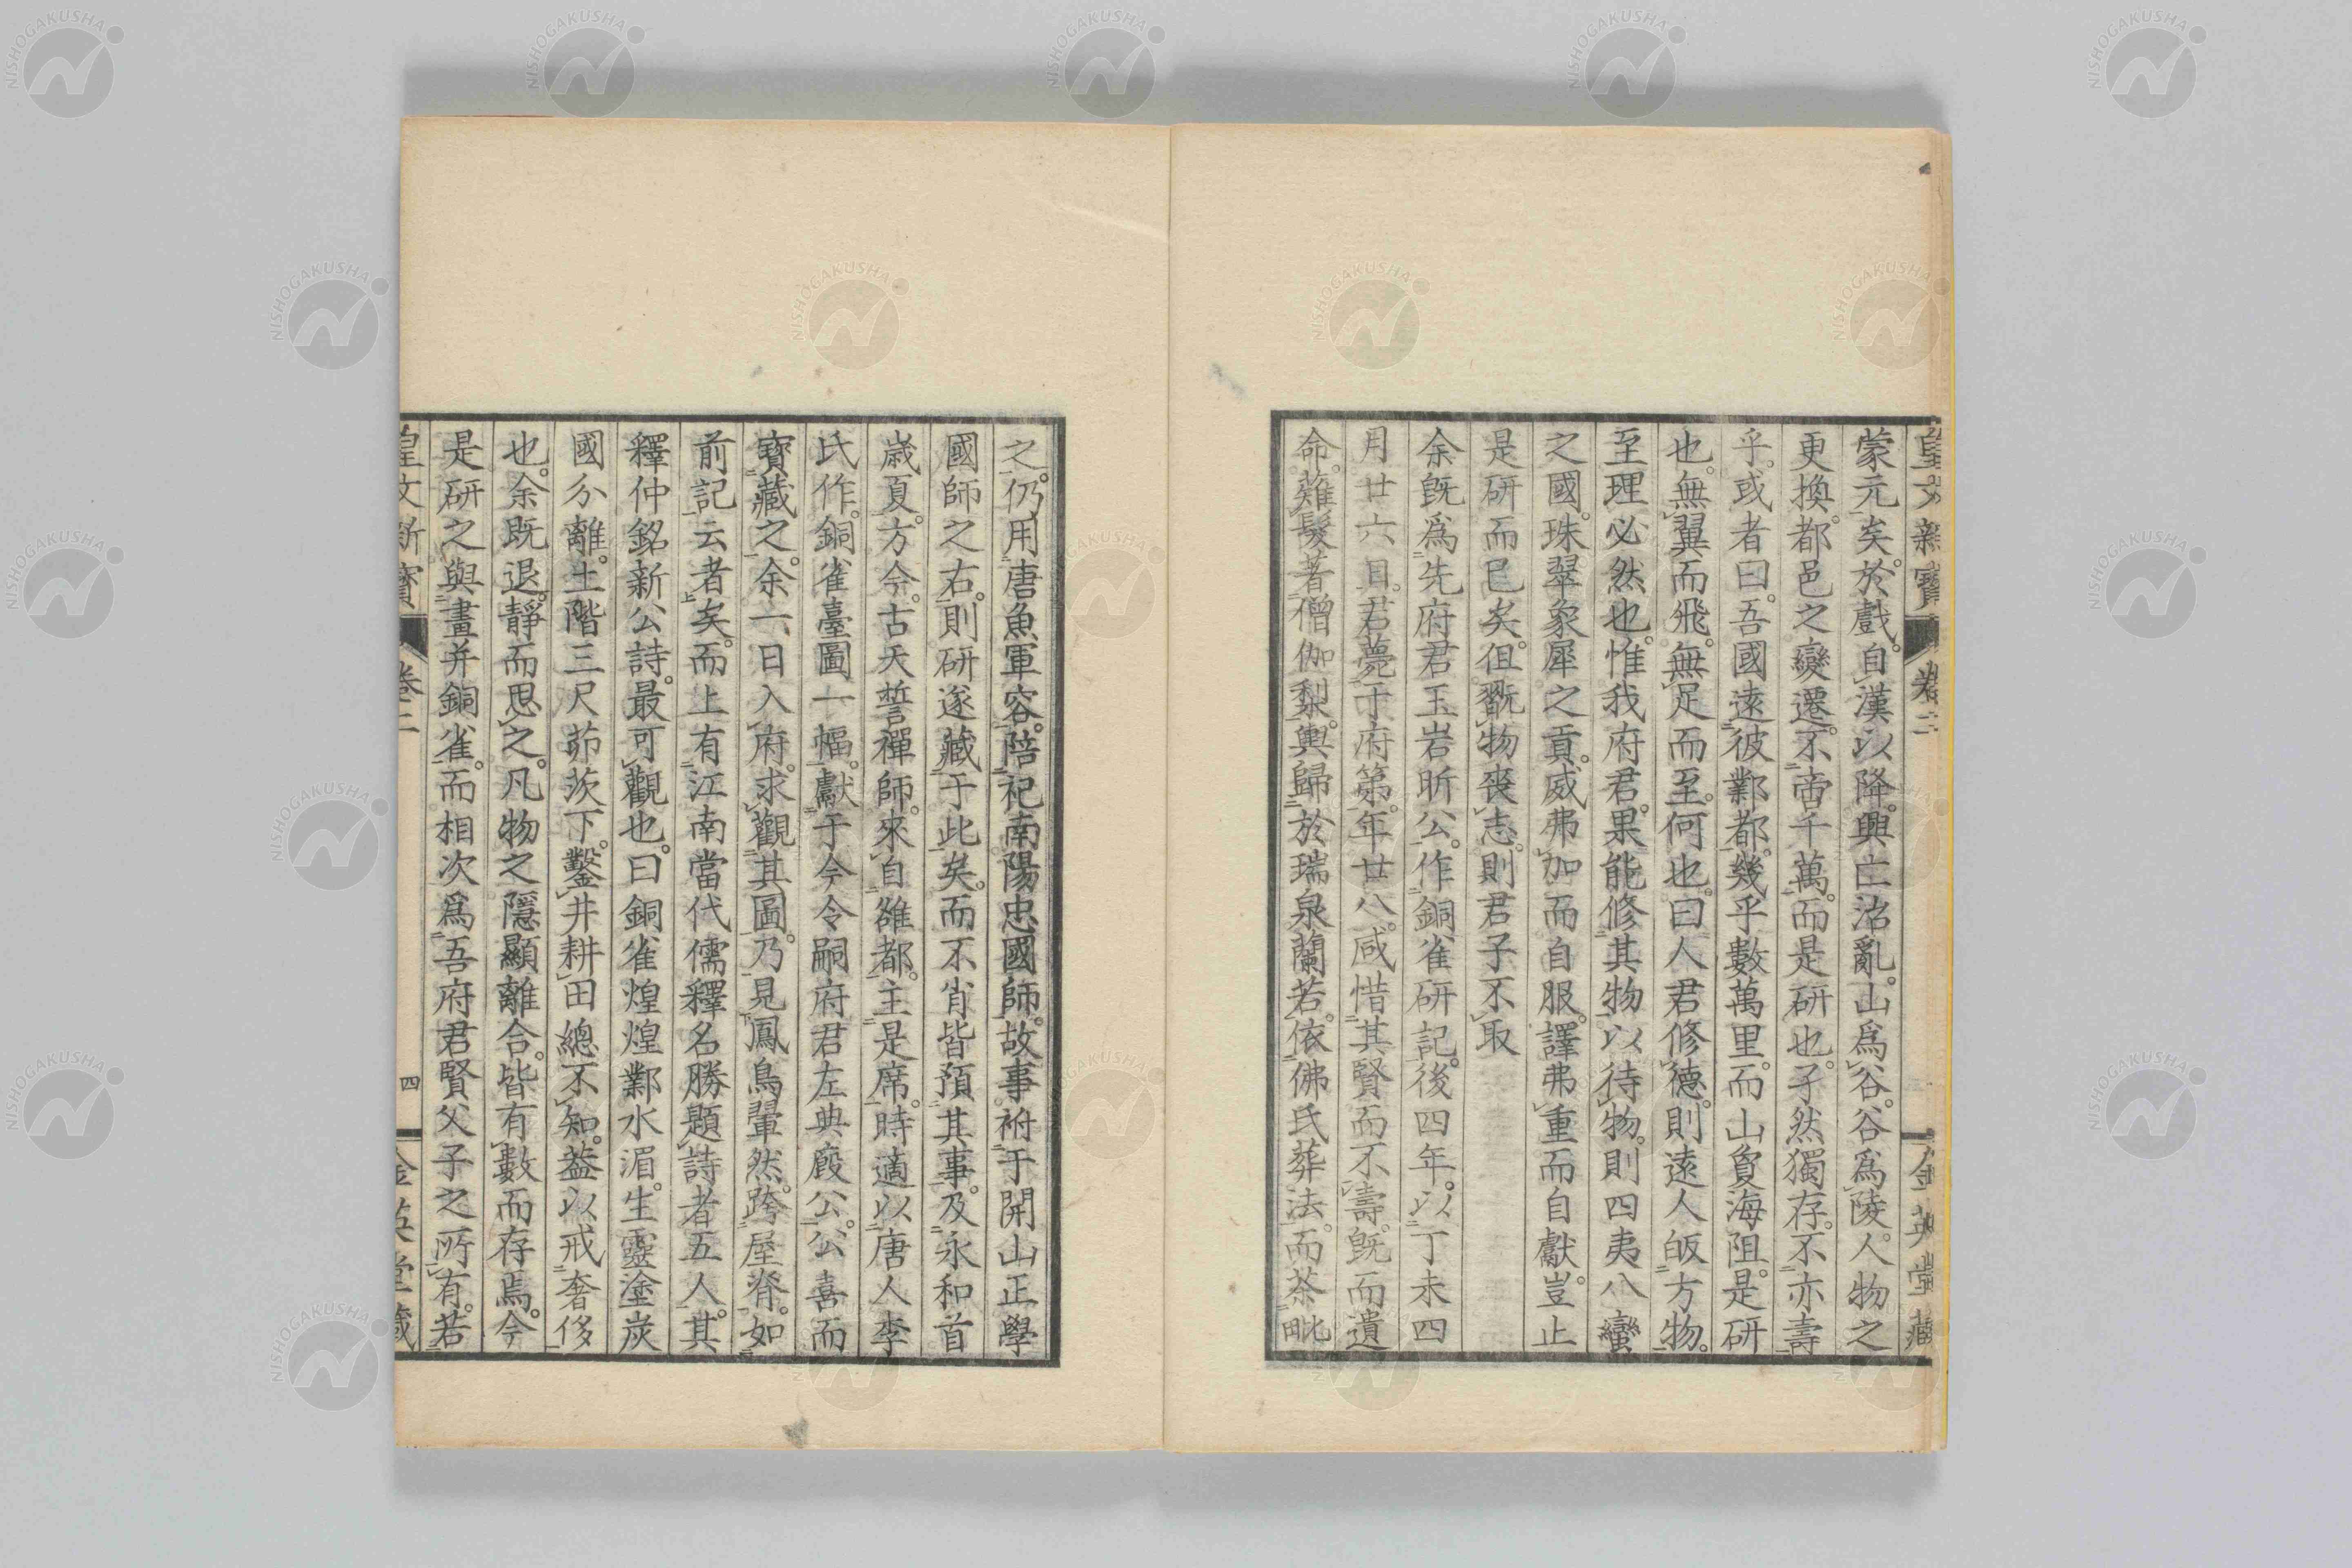 蒙元矣。於戲。自漢以降。興亡治亂。山爲谷。谷爲陵。人物之
更換。都邑之變遷。不啻千萬。而是研也。孑然獨存。不亦壽
乎。或者曰。吾國遠彼鄴都。幾乎數萬里。而山負海阻。是研
也。無翼而飛。無足而至。何也。曰人君修德。則遠人皈方物。
至理必然也。惟我府君。果能修其物以待物。則四夷八蠻
之國。珠翠象犀之貢。威弗加而自服。譯弗重而自獻。豈止
是研而已矣。徂翫物喪志。則君子不取
余旣爲先府君玉岩昕公。作銅雀研記。後四年。以丁未四
月廿六日。君薨于府第。年廿八。咸惜其賢而不壽。旣而遺
命。薙髮著僧伽梨。輿歸於瑞泉蘭若。依佛氏葬法。而茶毗
之。仍用唐魚軍容。陪祀南陽忠國師。故事祔于開山正學
國師之右。則研遂藏于此矣。而不肖皆預其事。及永和首
歳夏。方今。古天誓禪師。來自雒都。主是席。時適以唐人李
氏作。銅雀臺圖一幅。獻于今令嗣府君左典廏公。公喜而
寶藏之。余一日入府。求觀其圖。乃見鳳鳥翬然。跨屋脊。如
前記云者矣。而上有江南當代儒釋名勝題詩者五人。其
釋仲銘新公詩。最可觀也。曰銅雀煌煌鄴水湄。生靈塗炭
國分離。土階三尺茆茨下。鑿井耕田總不知。葢以戒奢侈
也。余既退。靜而思之。凡物之隱顯離合。皆有數而存焉。今
是研之與畫并銅雀。而相次爲吾府君賢父子之所有。若
皇文新寶 卷二 四 金英堂藏